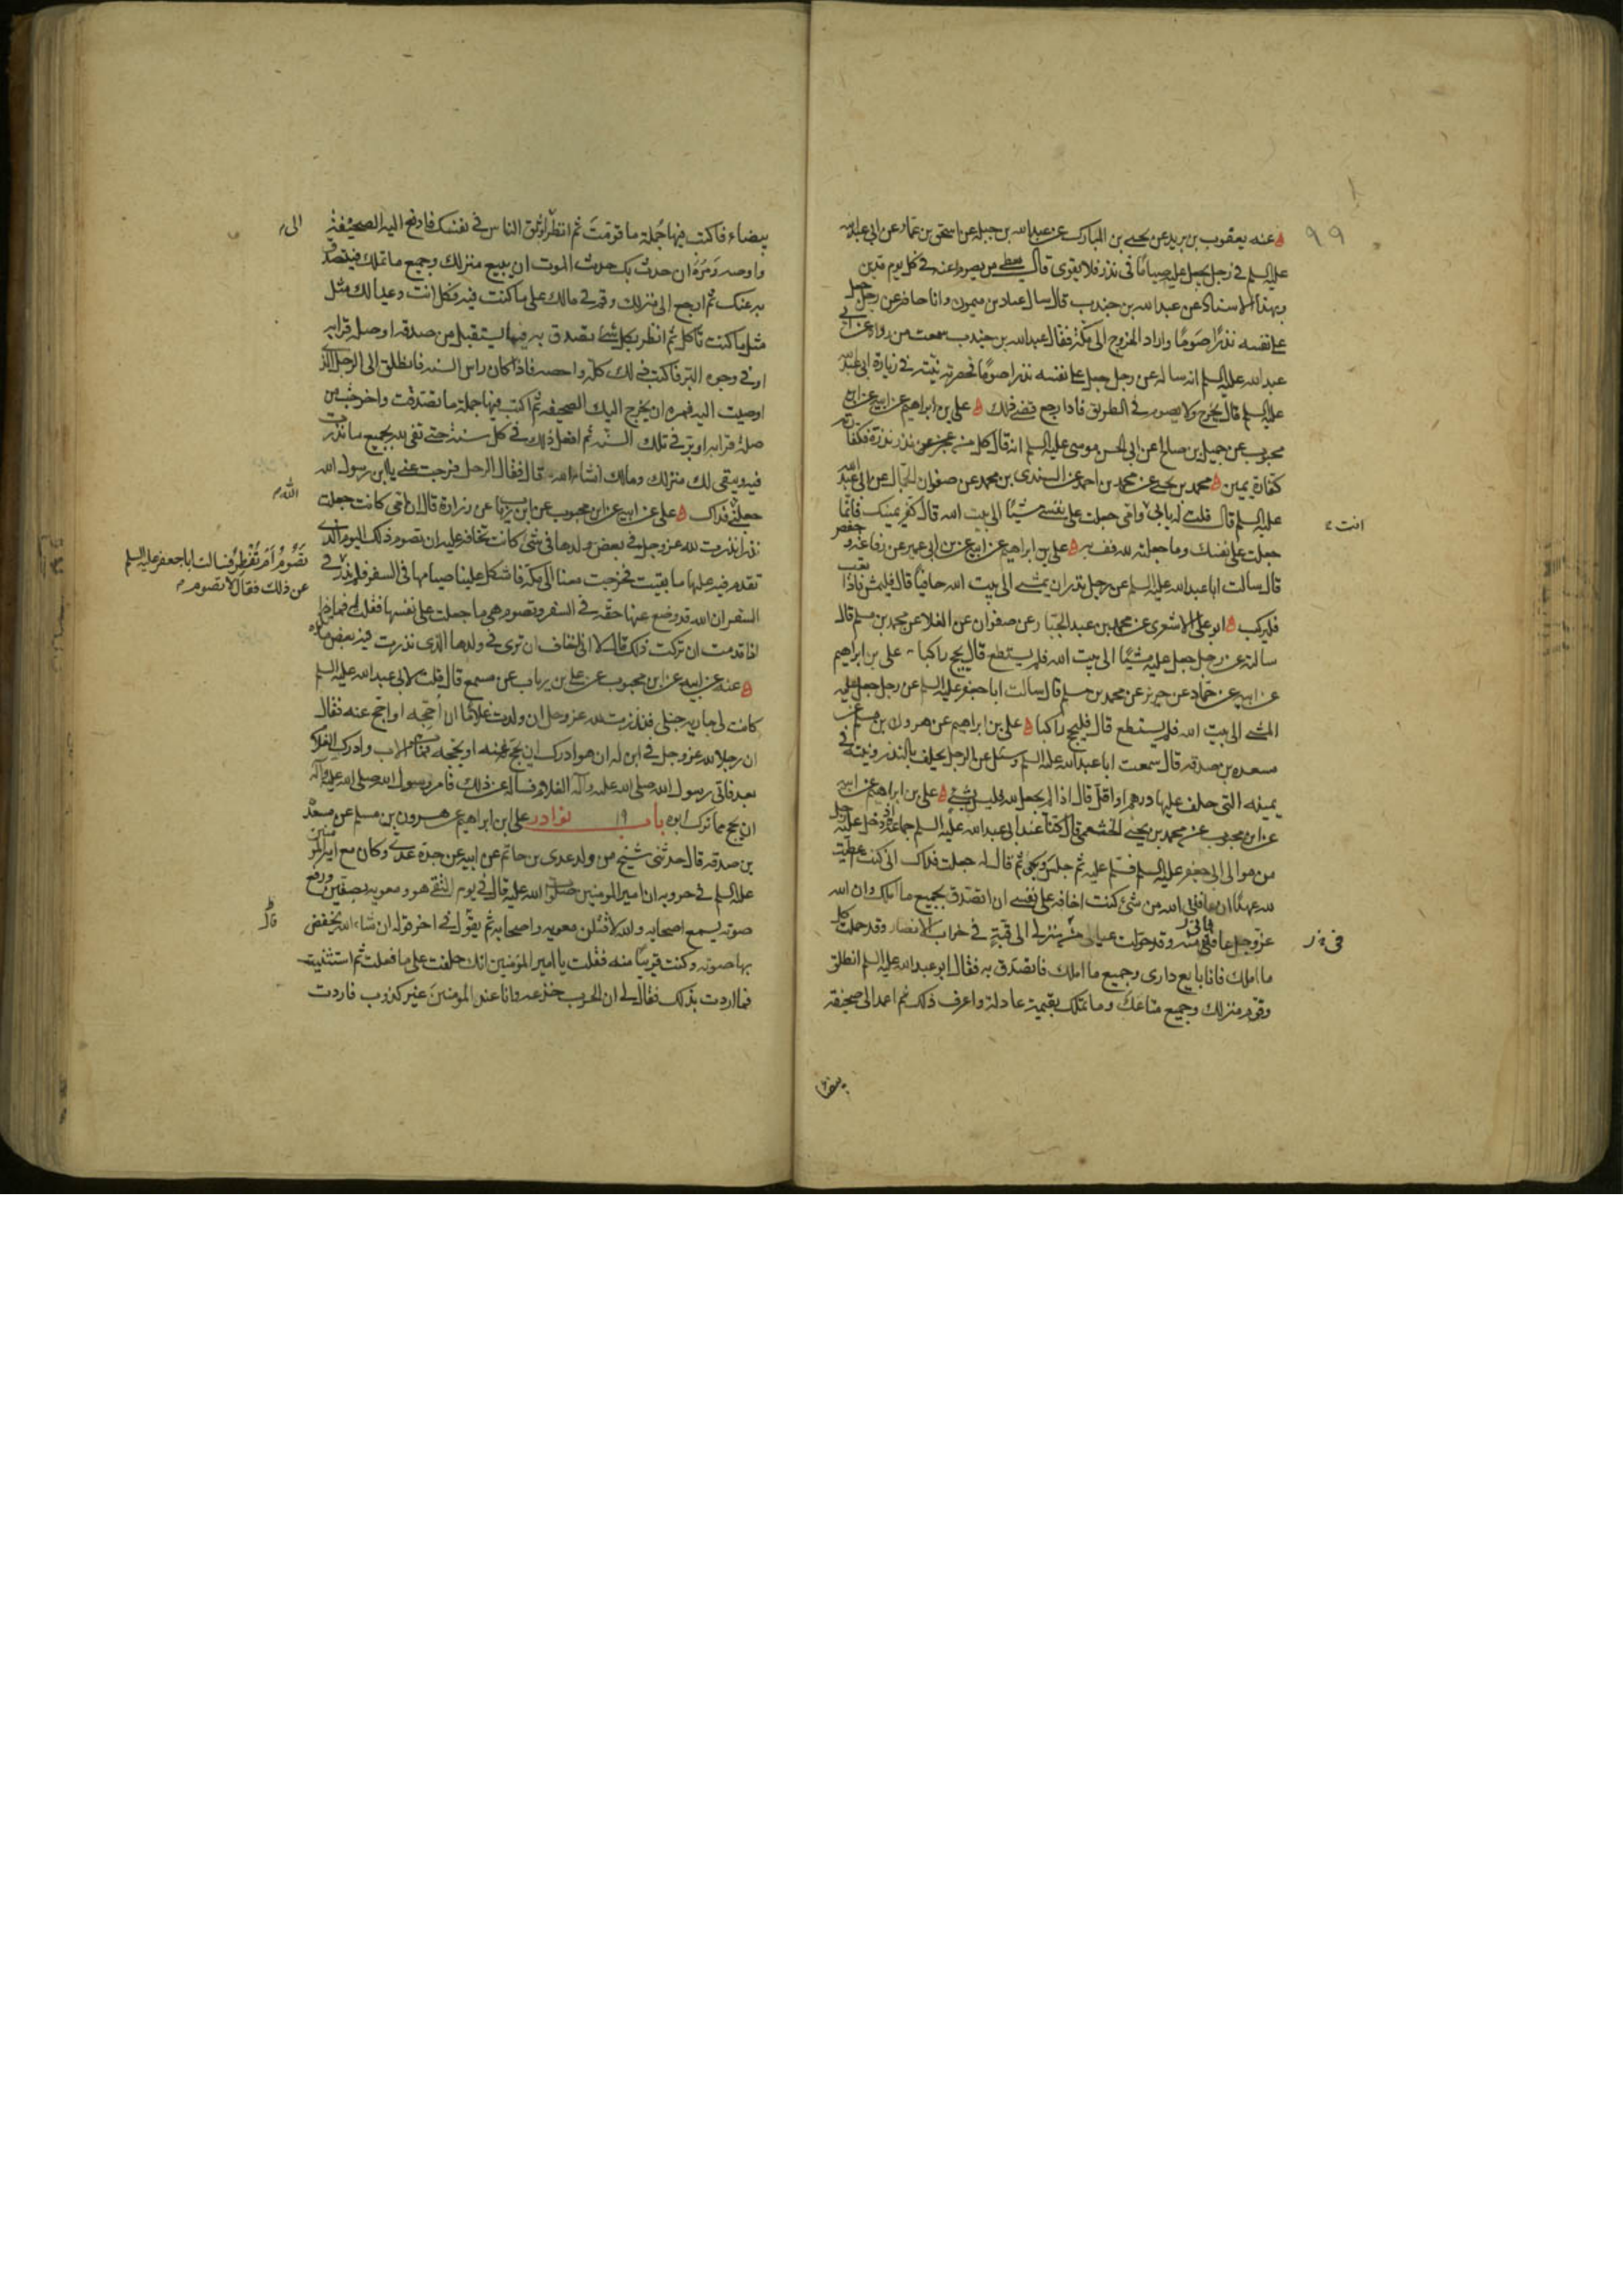 ٩٩
عنه يعقوب بن يزيد عن يحيى بن المبارك عن عبد الله بن جبلة عن اسحق بن عمار عن ابي عبد الله
عليه السلم في رجل يجعل عليه صياما في نذر فلا يقوى قال يعطي من يصوم عنه في كل يوم مدين
وبهذا الاسناد عن عبد الله بن جندب قال سال عباد بن ميمون وانا حاضر عن رجل جعل
على نفسه نذرا صوما واراد الخروج الى مكة فقال عبد الله بن جندب سمعت من رواه عن ابي
عبد الله عليه السلم انه ساله عن رجل جعل على نفسه نذرا صوما فحضرته نيته في زيارة ابي عبد الله
عليه السلم قال يخرج ولا يصوم في الطريق فاذا رجع قضى ذلك علي بن ابراهيم عن ابيه عن ابن
محبوب عن جميل بن صالح عن ابي الحسن موسى عليه السلم انه قال كل من عجز عن نذر نذره فكفارته
كفارة يمين محمد بن يحيى عن محمد بن احمد عن السندي بن محمد عن صفوان الجمال عن ابي عبد الله
عليه السلم قال قلت له بابي وامي جعلت على نفسي مشيا الى بيت الله قال كفر يمينك فانما
انت
جعلت على نفسك وما جعلته لله فف به علي بن ابراهيم عن ابيه عن بن ابي عمير عن رفاعة وحفص
قال سالت ابا عبد الله عليه السلم عن رجل نذر ان يمشي الى بيت الله حافيا قال فليمش فاذا تعب
فليركب ابو علي الاشعري عن محمد بن عبد الجبار عن صفوان عن العلا عن محمد بن مسلم قال
سالته عن رجل جعل عليه مشيا الى بيت الله فلم يستطع قال يحج راكبا علي بن ابراهيم
عن ابيه عن حماد عن حريز عن محمد بن مسلم قال سالت ابا جعفر عليه السلم عن رجل جعل عليه
المشي الى بيت الله فلم يستطع قال فليحج راكبا علي بن ابراهيم عن هرون بن مسلم عن
مسعدة بن صدقه قال سمعت ابا عبد الله عليه السلم وسئل عن الرجل يحلف بالنذر ونيته في
يمينه التي حلف عليها درهم او اقل قال اذا لم يجعل لله فليس بشيء علي بن ابراهيم عن ابيه
عن ابن محبوب عن محمد بن يحيى الخثعمي قال كنا عند ابي عبد الله عليه السلم جماعة اذ دخل عليه رجل
من موالي ابي جعفر عليه السلم فسلم عليه ثم جلس وبكى ثم قال له جعلت فداك اني كنت اعطيت
لله عهدا ان عافاني الله من شئ كنت اخافه على نفسي ان اتصدق بجميع ما املك وان الله
عز وجل عافاني منه وقد حولت عيالي من منزلي الى قبة في خراب الانصار وقد حملت كل
ما املك فانا بايع داري وجميع ما املك فاتصدق به فقال ابو عبد الله عليه السلم انطلق
وقوم منزلك وجميع متاعك وما تملك بقيمة عادلة واعرف ذلك ثم اعمد الى صحيفة
بيضاء
بيضاء فاكتب فيها جملة ما قومت ثم انظر اوثق الناس في نفسك فادفع اليه الصحيفة
الى
واوصه ومره ان حدث بك حدث الموت ان يبيع منزلك وجميع ما تملك فيتصدق
به عنك ثم ارجع الى منزلك وقم في مالك على ما كنت فيه فكل انت وعيالك مثل
مثل ما كنت تاكل ثم انظر بكل شيء تصدق به فيما يستقبل من صدقه او صلة قرابه
او في وجوه البر فاكتب ذلك كله واحصه فاذا كان راس السنه فانطلق الى الرجل الذي
اوصيت اليه فمره ان يخرج اليك الصحيفه ثم اكتب فيها جملة ما تصدقت واخرجت من
صلة قرابه او بر في تلك السنه ثم افعل ذلك في كل سنة حتى تفي لله بجميع ما نذرت
فيه ويبقى لك منزلك ومالك انشاء الله قال فقال الرجل فرجت عني يا ابن رسول الله
الله
جعلني فداك علي عن ابيه عن ابن محبوب عن ابن رياب عن زرارة قال ان امي كانت جعلت
نذرا نذرت لله عز وجل في بعض ولدها في شئ كانت تخافه عليه ان تصوم ذلك اليوم الذي
تقدم فيه عليها ما بقيت فخرجت معنا الى مكة فاشكل علينا صيامها في السفر فلم ندر
تصوم ام تفطر فسالت ابا جعفر عليه السلم
عن ذلك فقال لا تصوم
السفر ان الله قد وضع عنها حقه في السفر وتصوم هي ما جعلت على نفسها فقلت له فماذا
اذا قدمت ان تركت ذلك قال لا اني اخاف ان ترى في ولدها الذي نذرت فيه بعض ما تكره
عنه عن ابيه عن ابن محبوب عن علي بن رياب عن مسمع قال قلت لابي عبد الله عليه السلم
كانت لي جاريه حبلى فنذرت لله عز وجل ان ولدت غلاما ان احجه او احج عنه فقال
ان رجلا نذر لله عز وجل في ابن له ان هو ادرك ان يحج عنه او يحجه فمات الاب وادرك الغلام
بعد فاتى رسول الله صلى الله عليه وآله الغلام فساله عن ذلك فامر رسول الله صلى الله عليه وآله
ان يحج مما ترك ابوه باب ١٩ نوادر علي ابن ابراهيم عن هرون بن مسلم عن مسعدة
بن صدقه قال حدثني شيخ من ولد عدي بن حاتم عن ابيه عن جده عدي وكان مع امير المؤمنين
عليه السلم في حروبه ان امير المومنين صلوات الله عليه قال في يوم التقى هو ومعويه بصفين ورفع
صوته يسمع اصحابه والله لاقتلن معويه واصحابه ثم يقول في اخر قوله ان شاء الله يخفض
بها صوته وكنت قريبا منه فقلت يا امير المؤمنين انك حلفت على ما فعلت ثم استثنيت
فما اردت بذلك فقال لي ان الحرب خدعه وانا عند المومنين غير كذوب فاردت